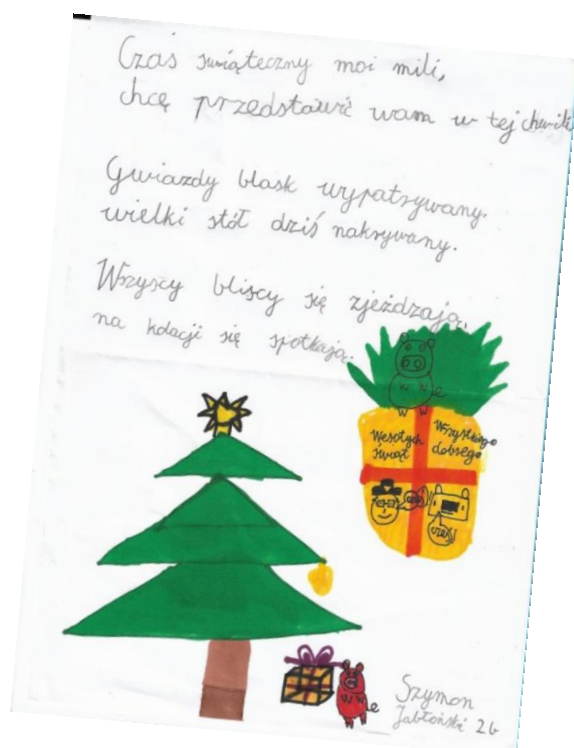 Czas świąteczny moi mili,
chcę przedstawić wam w tej chwili
Gwiazdy blask wypatrywany.
wielki stół dziś nakrywany.
Wszyscy bliscy się zjeżdzają,
na kolacji się spotkają.
Wesołych Świąt
Wszystkiego dobrego
cześć!
Szymon
Jabłoński 2b